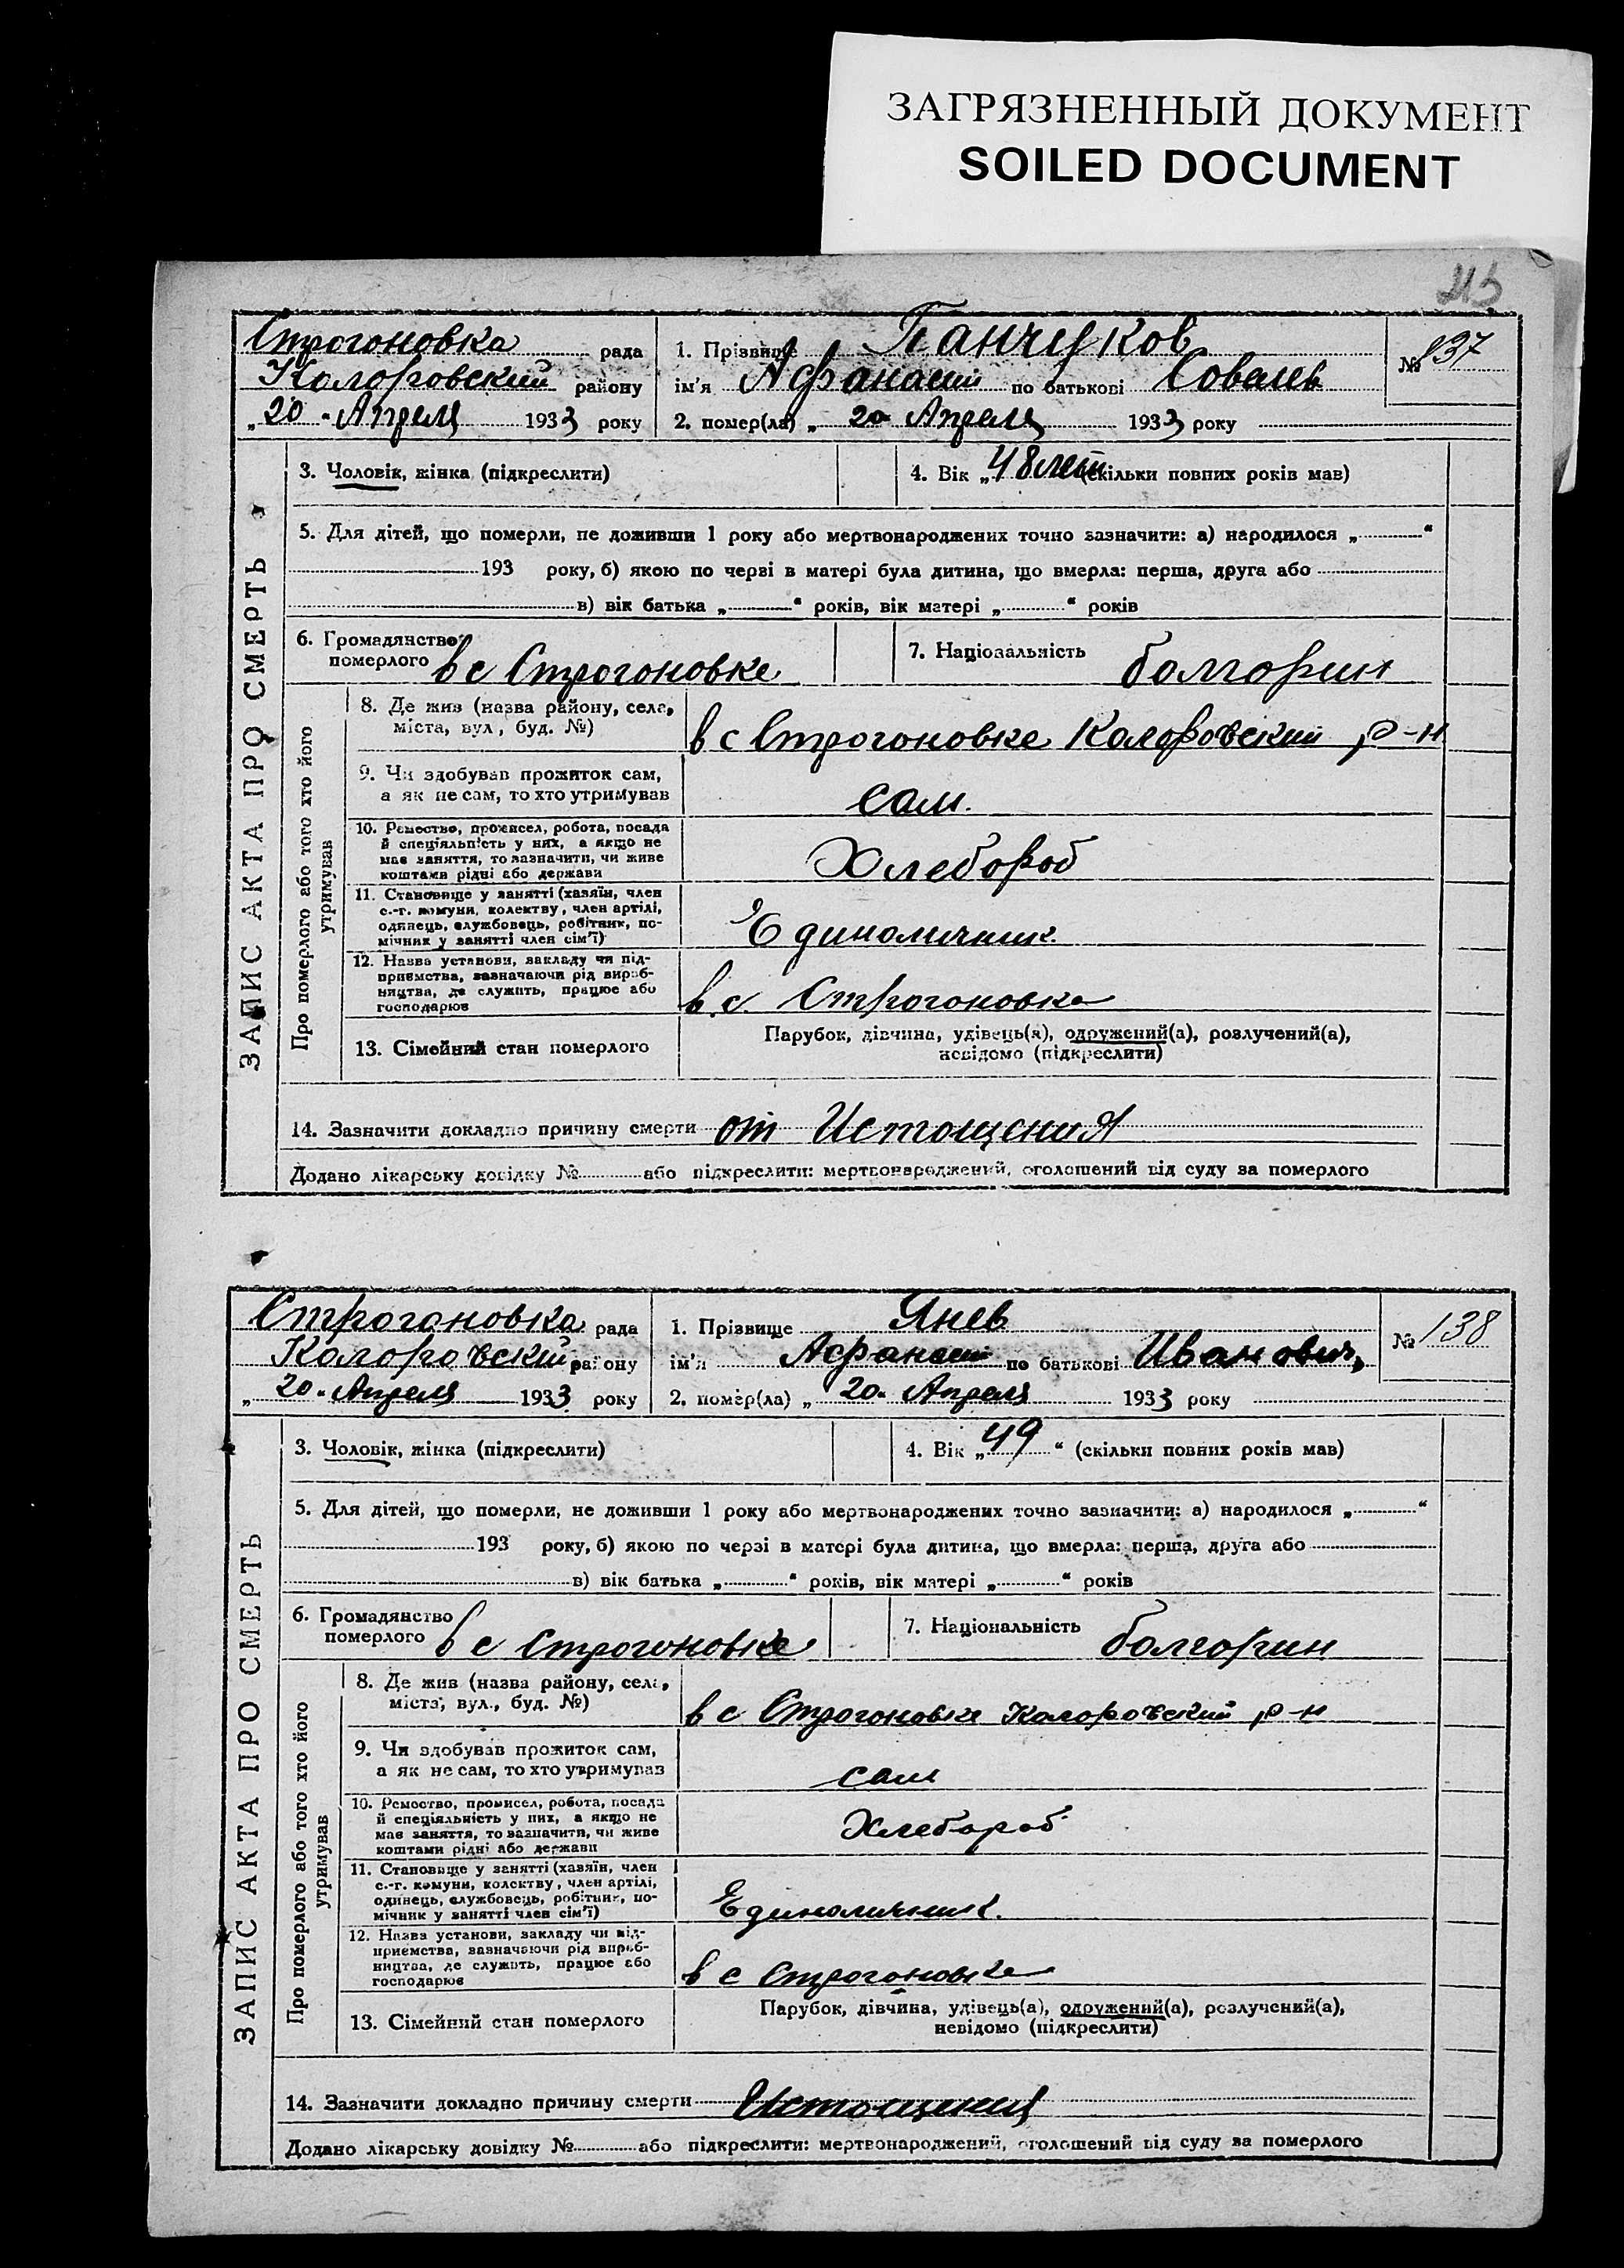 ЗАГРЯЗНЕННЫЙ ДОКУМЕНТ
SOILED DOCUMENT
Строгоновка рада
Колоровский району
„20“ Апреля 1933 року
1. Прізвище Панчуков
ім'я Афанасий по батькові
2. помер(ла) „20 Апреля 1933 року
№ 137
ЗАПИС АКТА ПРО СМЕРТЬ
3. Чоловік, жінка (підкреслити)
4. Вік „48 лет (скільки повних років мав)
5. Для дітей, що померли, не доживши 1 року або мертвонароджених точно зазначити: а) народилося „ “
193 року, б) якою по черзі в матері була дитина, що вмерла: перша, друга або
в) вік батька „ “ років, вік матері „ “ років
6. Громадянство
померлого в с Строгоновке
7. Національність болгорин
Про померлого або того хто його
утримував
8. Де жив (назва району, села,
міста, вул., буд. №)
в с Строгоновке Колоровский р-н
9. Чи здобував прожиток сам,
а як не сам, то хто утримував
сам.
10. Ремество, промисел, робота, посада
й спеціяльність у них, а якщо не
має заняття, то зазначити, чи живе
коштами рідні або держави
Хлебороб
11. Становище у занятті (хазяїн, член
с.-г. комуни, колективу, член артілі,
одинець, службовець, робітник, по-
мічник у занятті член сім'ї)
Единоличник.
12. Назва установи, закладу чи під-
приємства, зазначаючи рід вироб-
ництва, де служить, працює або
господарює
в. с. Строгоновка
13. Сімейний стан померлого
Парубок, дівчина, удівець(а), одружений(а), розлучений(а),
невідомо (підкреслити)
14. Зазначити докладно причину смерти от Истощения
Додано лікарську довідку № або підкреслити: мертвонароджений, оголошений від суду за померлого
Строгановка рада
Колоровский району
„20“ Апреля 1933 року
1. Прізвище Янев
ім'я Афанасий по батькові Иванович
2. помер(ла) „20“ Апреля 1933 року
№ 138
ЗАПИС АКТА ПРО СМЕРТЬ
3. Чоловік, жінка (підкреслити)
4. Вік „49“ (скільки повних років мав)
5. Для дітей, що померли, не доживши 1 року або мертвонароджених точно зазначити: а) народилося „ “
193 року, б) якою по черзі в матері була дитина, що вмерла: перша, друга або
в) вік батька „ “ років, вік матері „ “ років
6. Громадянство
померлого в с Строгоновке
7. Національність болгорин
Про померлого або того хто його
утримував
8. Де жив (назва району, села,
міста, вул., буд. №)
в с Строгоновке Колоровский р-н
9. Чи здобував прожиток сам,
а як не сам, то хто утримував
сам
10. Ремество, промисел, робота, посада
й спеціяльність у них, а якщо не
має заняття, то зазначити, чи живе
коштами рідні або держави
Хлебороб
11. Становище у занятті (хазяїн, член
с.-г. комуни, колективу, член артілі,
одинець, службовець, робітник, по-
мічник у занятті член сім'ї)
Единоличник.
12. Назва установи, закладу чи під-
приємства, зазначаючи рід вироб-
ництва, де служить, працює або
господарює
в с Строгоновке
13. Сімейний стан померлого
Парубок, дівчина, удівець(а), одружений(а), розлучений(а),
невідомо (підкреслити)
14. Зазначити докладно причину смерти Истощения
Додано лікарську довідку № або підкреслити: мертвонароджений, оголошений від суду за померлого